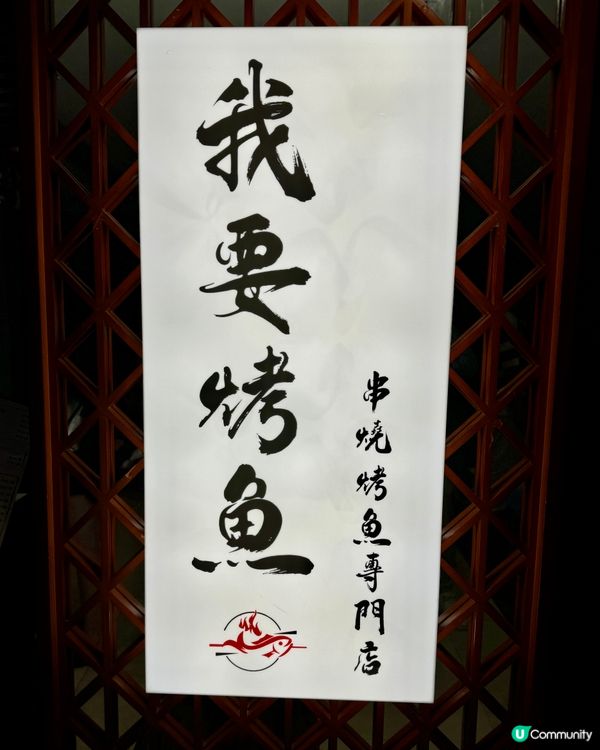 我要烤魚
串燒烤魚專門店
U Community